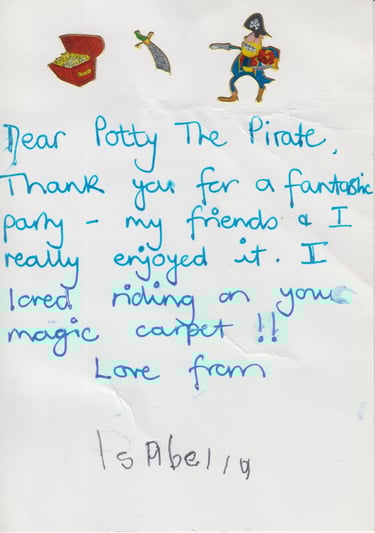 Dear Potty The Pirate,
Thank you for a fantastic
party - my friends & I
really enjoyed it. I
loved riding on your
magic carpet !!
Love from
IsAbella